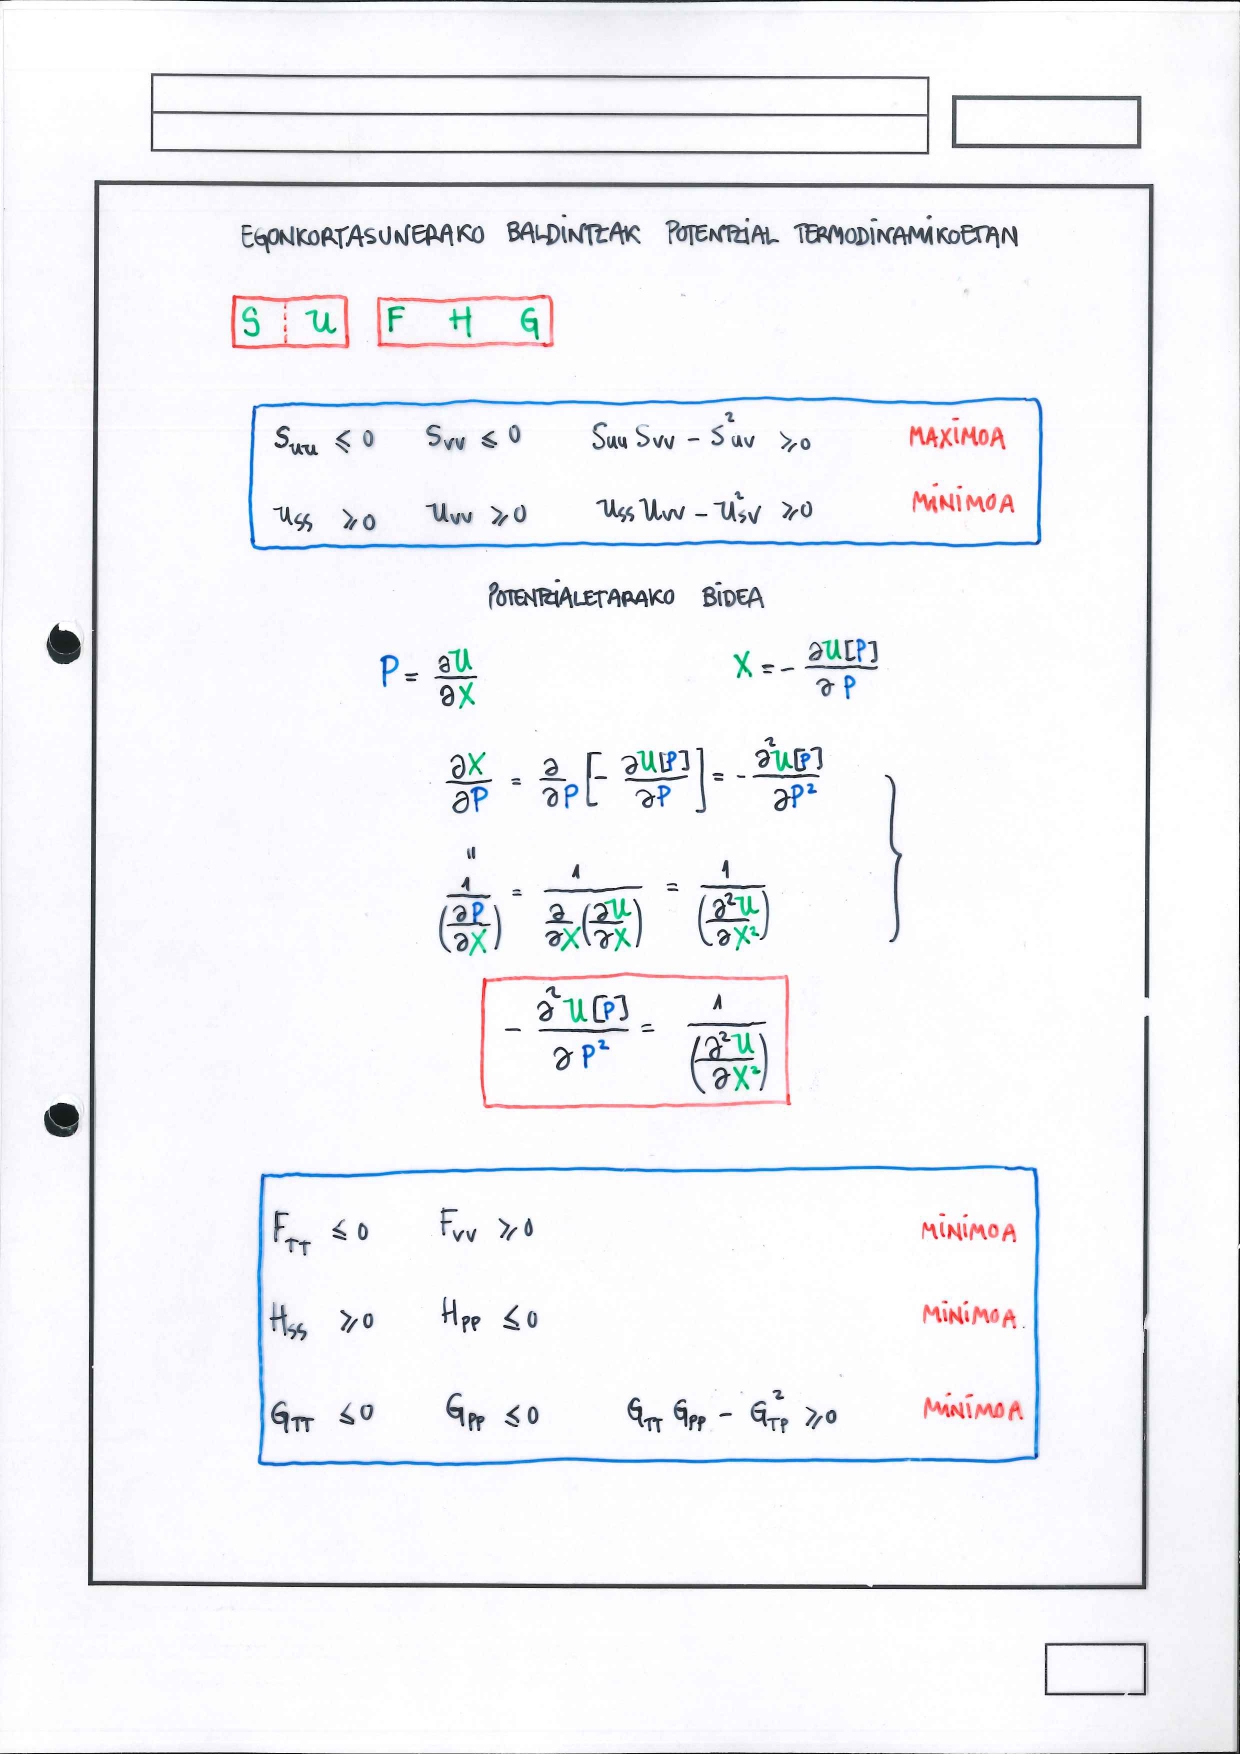 EGONKORTASUNERAKO BALDINTZAK POTENTZIAL TERMODINAMIKOETAN
S U F H G
S_uu ≤ 0 S_vv ≤ 0 S_uu S_vv - S²_uv ≥ 0 MAXIMOA
U_ss ≥ 0 U_vv ≥ 0 U_ss U_vv - U²_sv ≥ 0 MINIMOA
POTENTZIALETARAKO BIDEA
P = ∂U/∂X X = - ∂U[P]/∂P
∂X/∂P = ∂/∂P [- ∂U[P]/∂P] = - ∂²U[P]/∂P²
"
1/(∂P/∂X) = 1/(∂/∂X (∂U/∂X)) = 1/(∂²U/∂X²)
- ∂²U[P]/∂P² = 1/(∂²U/∂X²)
F_TT ≤ 0 F_VV ≥ 0 MINIMOA
H_SS ≥ 0 H_PP ≤ 0 MINIMOA.
G_TT ≤ 0 G_PP ≤ 0 G_TT G_PP - G²_TP ≥ 0 MINIMOA